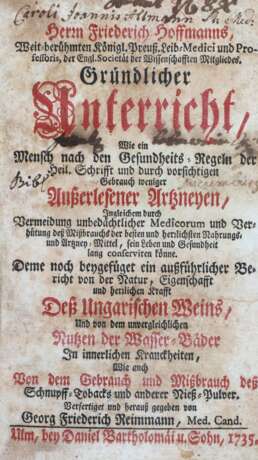 Caroli Joannis
Herrn Friederich Hoffmanns,
Weit-berühmten Königl. Preuß. Leib-Medici und Pro-
fessoris, der Engl. Societät der Wissenschafften Mitgliedes.
Gründlicher
Unterricht,
Wie ein
Mensch nach den Gesundheits-Regeln der
Heil. Schrifft und durch vorsichtigen
Gebrauch weniger
Außerlesener Artzneyen,
Ingleichem durch
Vermeidung unbedächtlicher Medicorum und Ver-
hütung deß Mißbrauchs der besten und herrlichsten Nahrungs-
und Artzney-Mittel, sein Leben und Gesundheit
lang conserviren könne.
Deme noch beygefüget ein außführlicher Be-
richt von der Natur, Eigenschafft
und herrlichen Krafft
Deß Ungarischen Weins,
Und von dem unvergleichlichen
Nutzen der Wasser-Bäder
In innerlichen Kranckheiten,
Wie auch
Von dem Gebrauch und Mißbrauch deß
Schnupff-Tobacks und anderer Nieß-Pulver.
Verfertiget und herauß gegeben von
Georg Friederich Reimmann, Med. Cand.
Ulm, bey Daniel Bartholomäi u. Sohn, 1735.